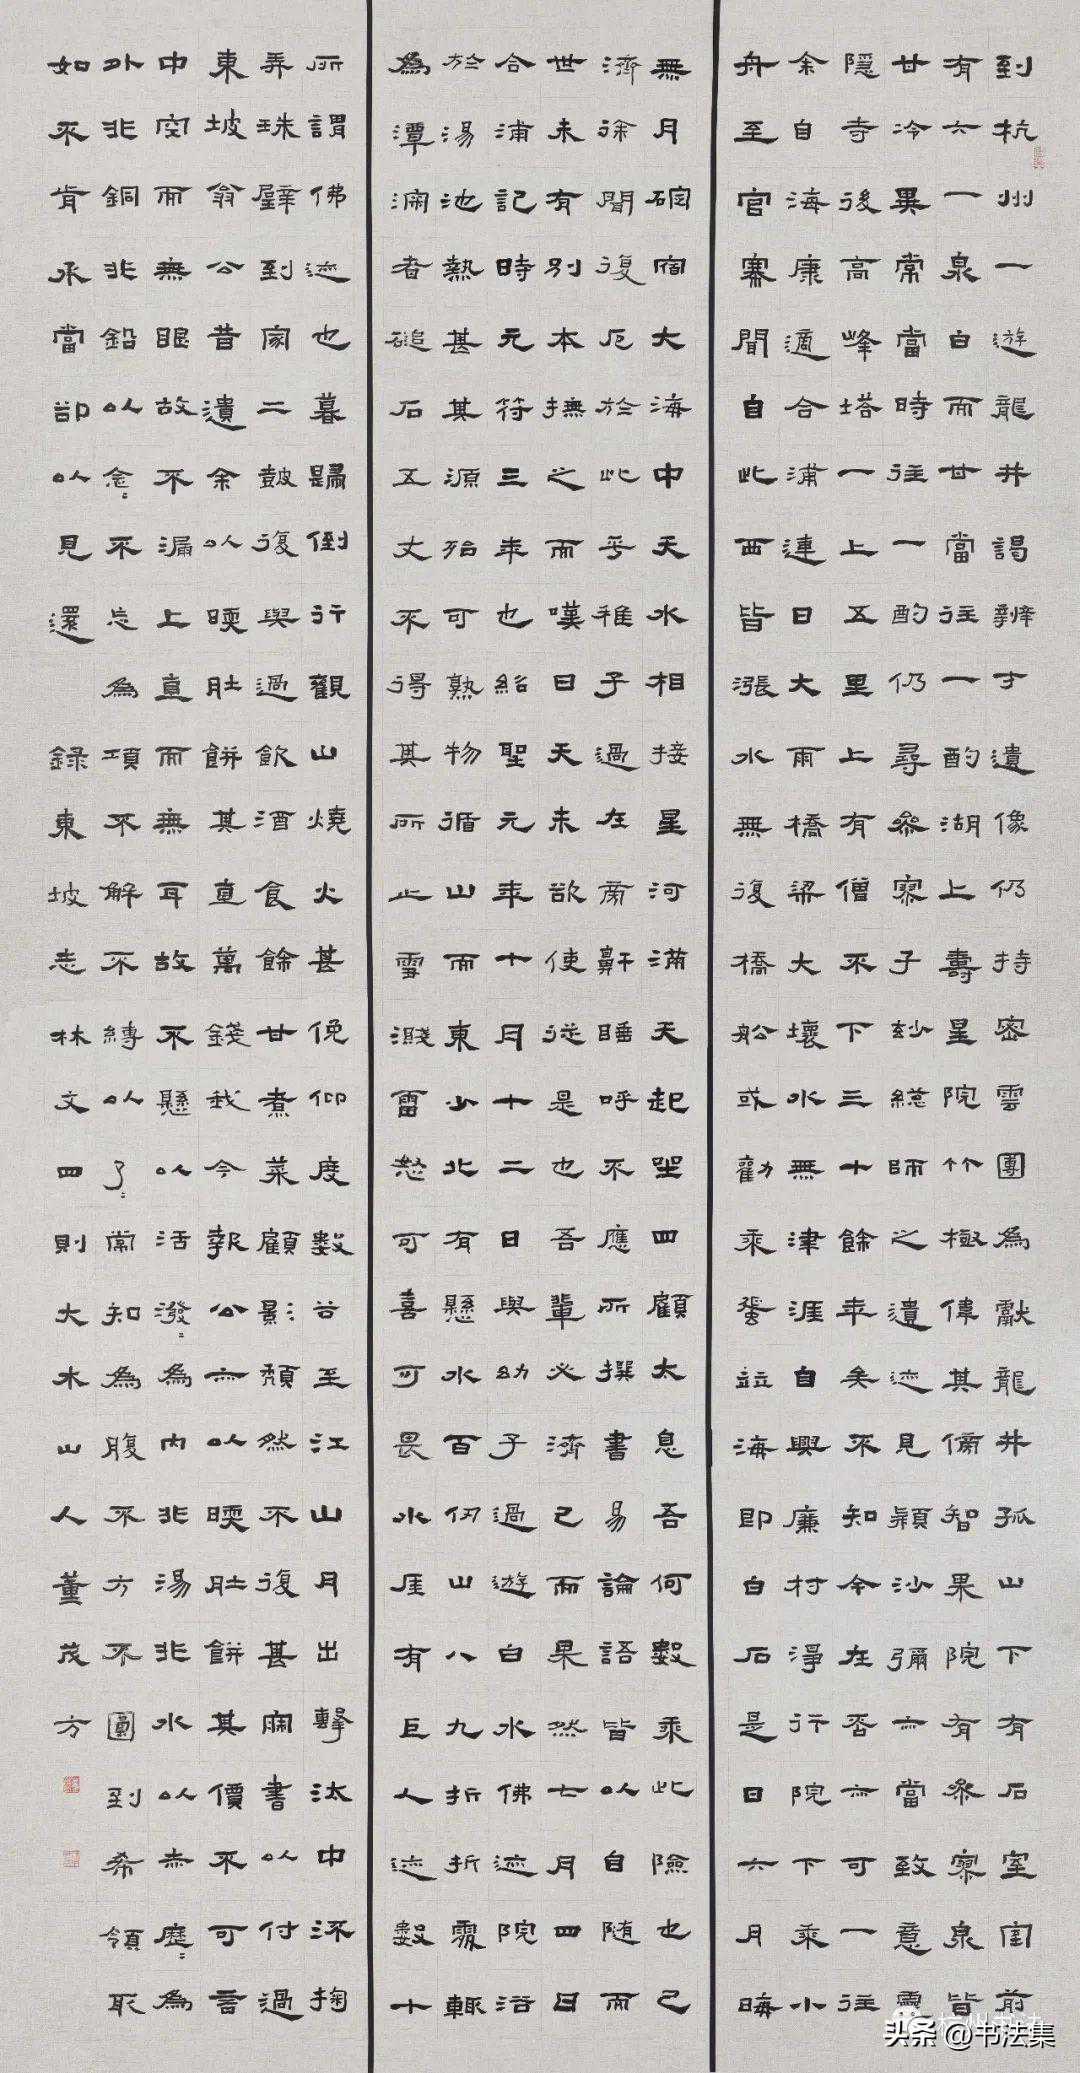 到杭州一遊龍井謁辨才遺像仍持密雲團為獻龍井孤山下有石室室前
有六一泉白而甘當往一酌湖上壽星院竹極偉其傍智果院有參寥泉皆
甘冷異常當時往一酌仍尋參寥子妙總師之遺迹見穎沙彌亦當致意靈
隱寺後高峰塔一上五里上有僧不下三十餘年矣不知今在否亦可一往
余自海康適合浦連日大雨橋梁大壞水無津涯自興廉村淨行院下乘小
舟至官寨聞自此西皆漲水無復橋船或勸乘蜑並海即白石是日六月晦
無月碇宿大海中天水相接星河滿天起坐四顧太息吾何數乘此險也已
濟徐聞復厄於此乎稚子過在旁鼾睡呼不應所撰書易論語皆以自隨而
世未有別本撫之而嘆曰天未欲使從是也吾輩必濟已而果然七月四日
合浦記時元符三年也紹聖元年十月十二日與幼子過遊白水佛迹院浴
於湯池熱甚其源殆可熟物循山而東少北有懸水百仞山八九折折處輒
為潭深者磓石五丈不得其所止雪濺雷怒可喜可畏水涯有巨人迹數十
所謂佛迹也暮歸倒行觀山燒火甚俛仰度數谷至江山月出擊汰中流掬
弄珠璧到家二鼓復與過飲酒食餘甘煮菜顧影頹然不復甚寐書以付過
東坡翁公昔遺余以暖肚餅其直萬錢我今報公亦以暖肚餅其價不可言
中空而無眼故不漏上直而無耳故不懸以活潑〻為內非湯非水以赤歷〻為
外非銅非鉛以念〻不忘為項不解不縛以了〻常知為腹不方不圓到希領取
如不肯承當卻以見還 錄東坡志林文四則大木山人董茂方
头条 @书法集